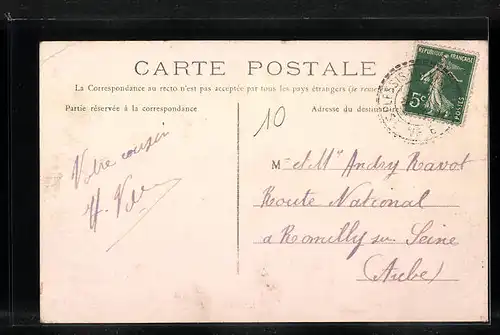 CARTE POSTALE
La Correspondance au recto n'est pas acceptée par tous les pays étrangers (se
Partie réservée à la correspondance
Adresse du
REPUBLIQUE FRANÇAISE
5c
POSTES
PLESSIS
10
Votre cousin
H.
M. et Me Andry Ravot
Route National
a Romilly sur Seine
(Aube)